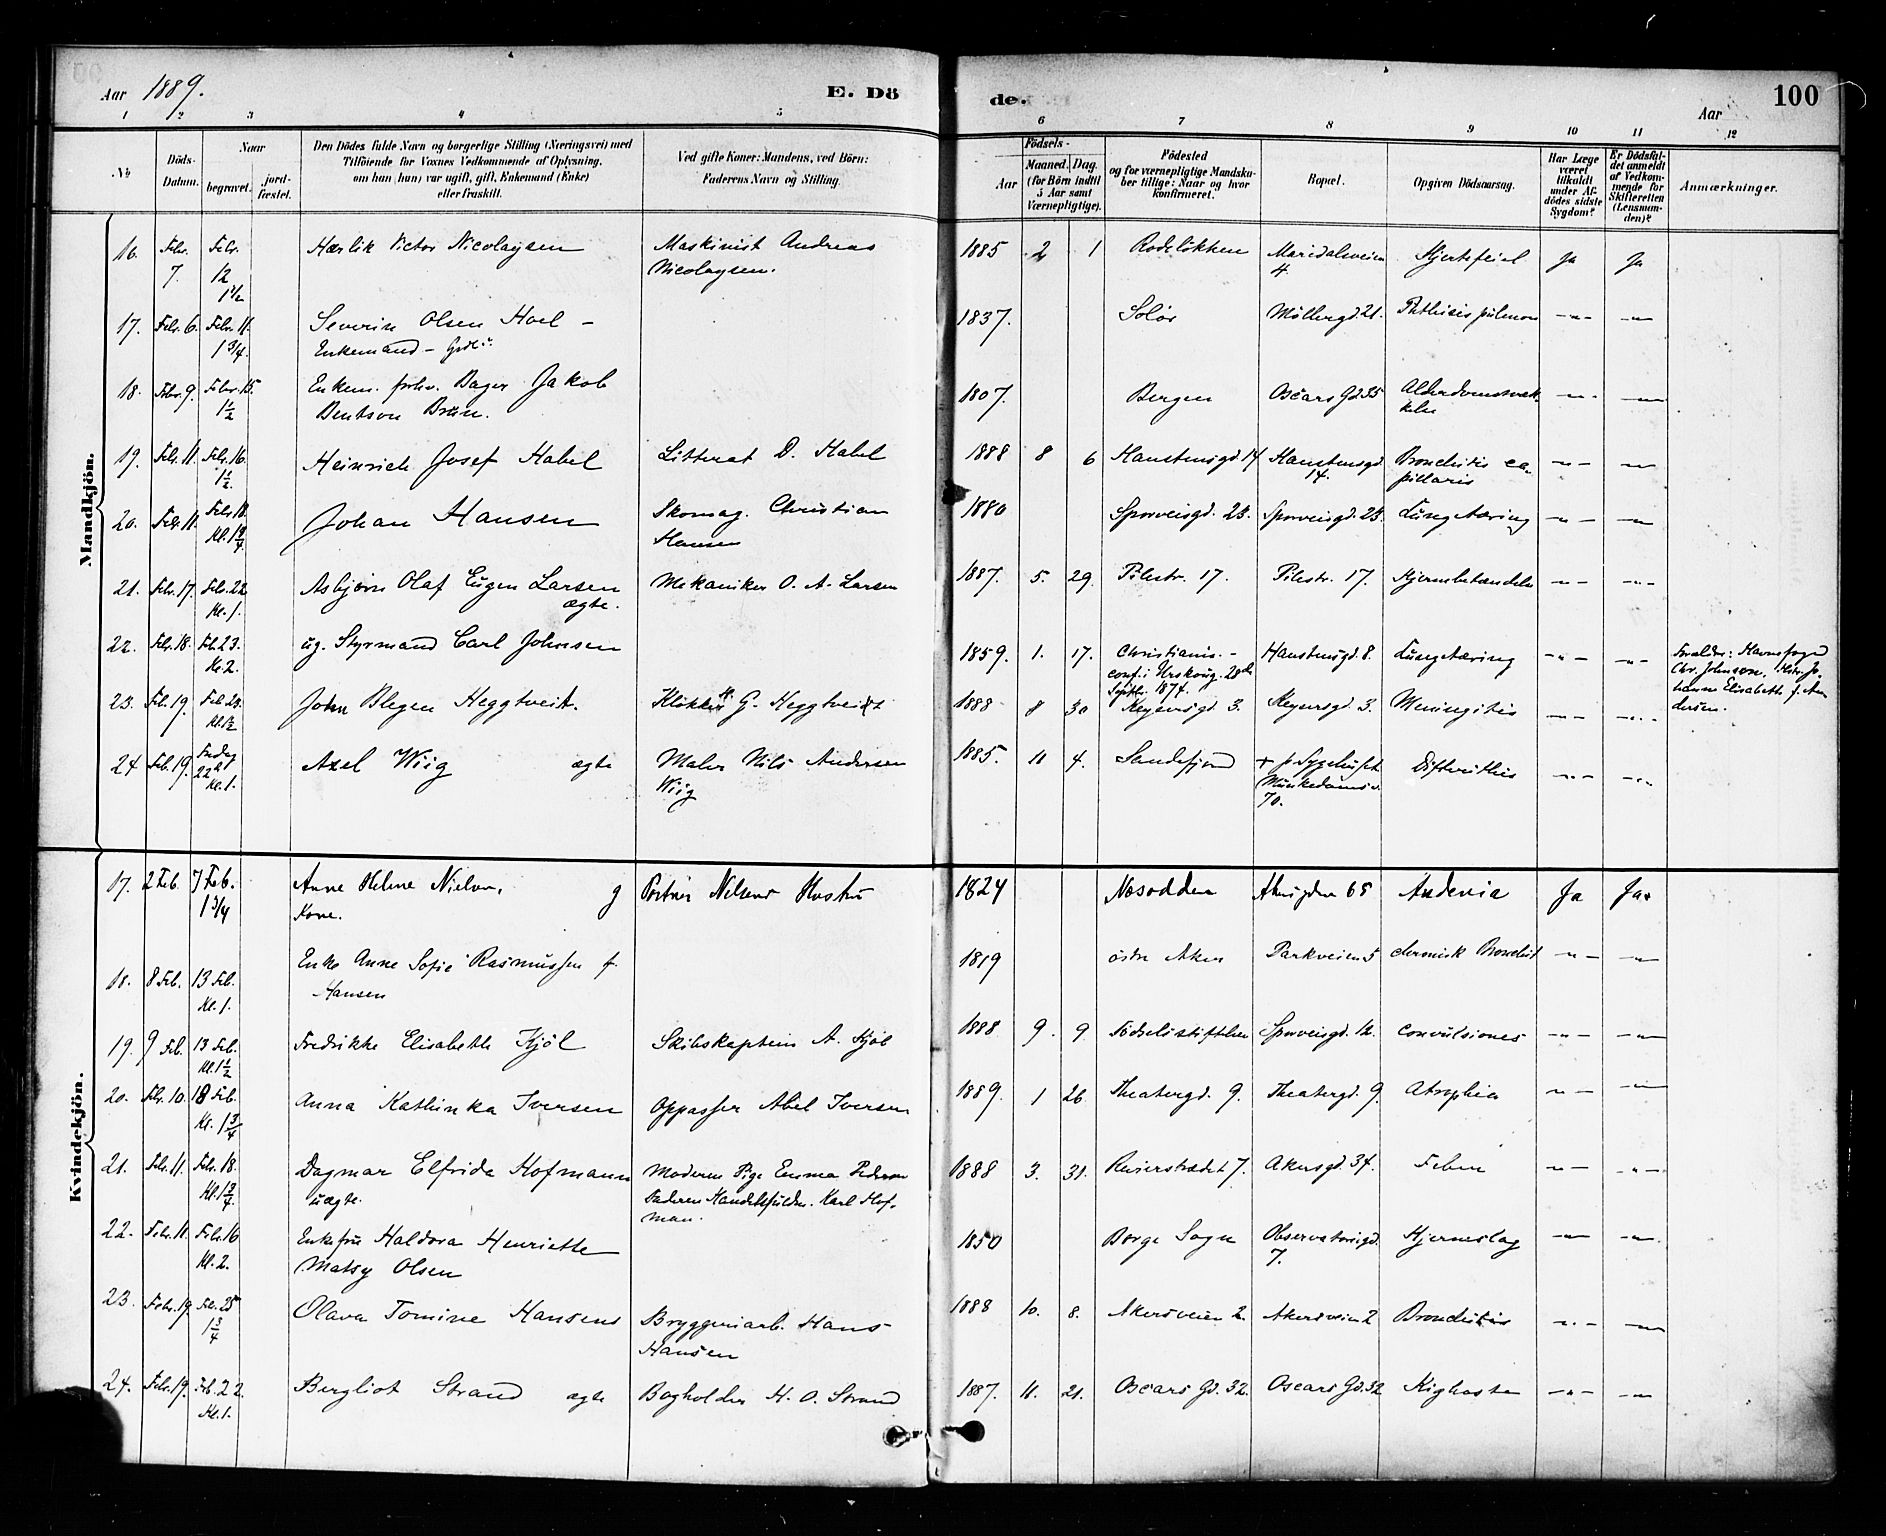 Aar 1889. E. Dö de. Aar 100
1 2 3 4 5 6 7 8 9 10 11 12
No
Döds-Datum.
Naar begravet. jord-fæstet.
Den Dödes fulde Navn og borgerlige Stilling (Næringsvei) med
Tilföiende for Voxnes Vedkommende af Oplysning,
om han (hun) var ugift, gift, Enkemand (Enke)
eller fraskilt.
Ved gifte Koner: Mandens, ved Börn:
Faderens Navn og Stilling.
Födsels-
Aar Maaned. Dag.
(for Börn indtil
5 Aar samt
Værnepligtige).
Födested
og for værnepligtige Mandsku-
ber tillige: Naar og hvor
konfirmeret.
Bopæl.
Opgiven Dödsaarsag.
Har Læge
været
tilkaldt
under Af-
dödes sidste
Sygdom?
Er Dödsfal-
det anmeldt
af Vedkom-
mende for
Skifteretten
(Lensman-
den)?
Anmærkninger.
Mandkjön.
16. Febr. 7. Febr. 12 1 1/2 Hærlik Victor Nicolaysen Maskinist Andreas 1885 2 1 Rodeløkken Maridalsveien 4. Hjertefeil Ja Ja
Nicolaysen.
17. Febr. 6. Febr. 11. 1 3/4. Severin Olsen Hoel – 1837. Solør Møllergd. 21. Phthisis pulmon –"– –"–
Enkemand –
18. Febr. 9. Febr. 15. 1 1/2 Enkem. forhv. Bager Jakob 1807. Bergen Oscars Gd. 35 Alderdomssvæk-
Bentson Brun. kelse –"– –"–
19. Febr. 11. Febr. 16. 1 1/2. Heinrich Josef Habel Litterat D. Habel 1888 8 6 Hausmnsgd 14 Hausmnsgd. 14. Bronchitis ca-
pillaris –"– –"–
20. Febr. 11. Febr. 18. Kl. 1 3/4 Johan Hansen Skomag. Christian 1880 Sporveisgd. 23. Sporveisgd. 23. Lungetæring –"– –"–
Hansen
21. Febr. 17. Febr. 22 Kl. 1. Asbjørn Olaf Eugen Larsen Mekaniker O. A. Larsen 1887. 5. 29. Pilestr. 17. Pilestr. 17. Hjernebetændelse –"– –"–
ægte.
22. Febr. 18. Feb. 23. Kl. 2. ug. Styrmand Carl Johnsen 1859. 1. 17. Christiania. – Hausmnsgd. 8. Lungetæring –"– –"– Forældre: Havnefoged
conf. i Urskoug. Chr. Johnsen,
Septbr. 1874. Elisabeth f. An-
dersen.
23. Feb. 19. Feb 23. Kl. 1 1/2 John Blegen Heggtveit. Klokker G. Heggtveit 1888 8 30 Keysersgd. 3. Keysersgd. 3. Meningitis –"– –"–
24 Feb. 19. Fredag 22d Kl. 1. Axel Wiig ægte Maler Nils Andersen 1885. 11 4. Sandefjord + p. Sygehuset Difterithis –"– –"–
Wiig Munkedamsv. 70.
Kvindekjön.
17. 2 Feb. 7 Feb. 1 3/4 Anne Helene Nielsen, g Portner Nielsens Hustru 1824 Nesodden Akersgden 65 Ja Ja.
Kone.
18. 8 Feb. 13 Feb. Kl. 1. Enke Anne Sofie Rasmussen f. 1819 østre Aker Parkveien 5 chronisk Bronchit –"– –"–
Hansen
19. 9 Feb. 13 Feb. Kl. 1 1/2 Fredrikke Elisabeth Kjøl Skibskaptein A. Kjøl 1888 9. 9 Fødselsstiftelsen Sporveisgd. 12. Convulsiones –"– –"–
20. Febr. 10. 18 Feb. Kl. 1 3/4 Anna Kathinka Iversen Oppasser Abel Iversen 1889. 1 26 Theatergd. 9. Theatergd. 9 Atrophia –"– –"–
21. Febr. 11. Febr. 18. Kl. 1 3/4. Dagmar Elfrida Hofmann Moderen Pige Emma Pedersen 1888 3. 31. Revierstrædet 7. Akersgd. 34. Feber –"– –"–
uægte. Faderen Handelsfuldm. Karl Hof-
man.
22. Febr. 11. Febr. 16 Kl. 2. Enkefru Haldora Henriette 1850 Borge Sogn Observatoriegd. 7. Hjerneslag –"– –"–
Matsy Olsen
23. Febr. 19. Feb. 25 1 3/4 Olava Tomine Hansen Bryggeriarb. Hans 1888 10. 8. Akersveien 2. Akersveien 2 Bronchitis –"– –"–
Hansen
24. Febr. 19. Feb. 22. Kl. 1. Bergliot Strand ægte Bogholder H. O. Strand 1887. 11. 21. Oscars Gd. 32. Oscars Gd. 32 Kighoste –"– –"–